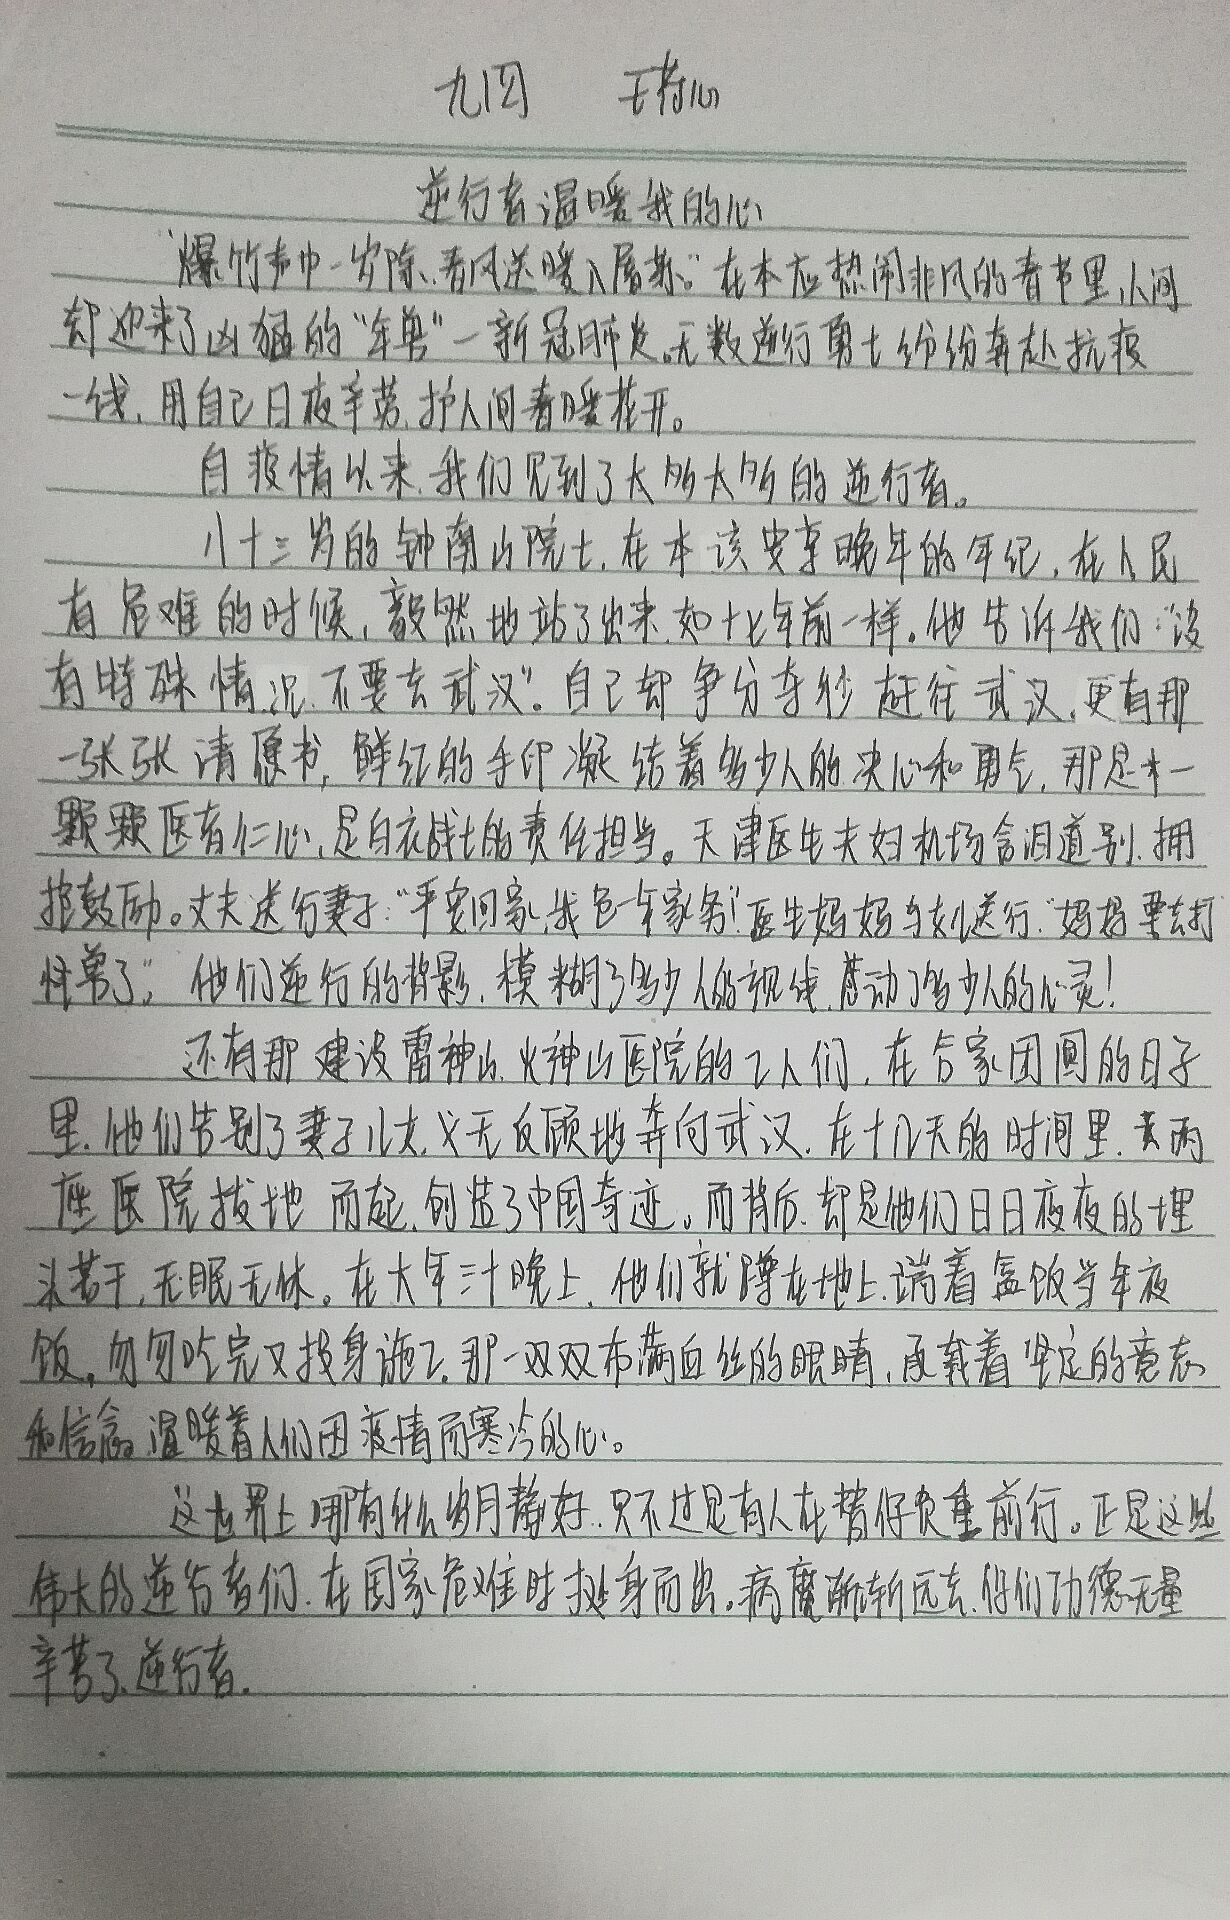 九四 王梓心
逆行者温暖我的心
“爆竹声中一岁除、春风送暖入屠苏。”在本应热闹非凡的春节里,人间
却迎来了凶猛的“年兽”一新冠肺炎。无数逆行勇士纷纷奔赴抗疫
一线,用自己日夜辛劳,护人间春暖花开。
自疫情以来,我们见到了太多太多的逆行者。
八十三岁的钟南山院士,在本该安享晚年的年纪,在人民
有危难的时候,毅然地站了出来,如十七年前一样。他告诉我们:“没
有特殊情况,不要去武汉”。自己却争分夺秒赶往武汉,更有那
一张张请愿书,鲜红的手印凝结着多少人的决心和勇气,那是一
颗颗医者仁心,是白衣战士的责任担当。天津医生夫妇机场含泪道别,拥
抱鼓励。丈夫送行妻子:“平安回家,我包一年家务!”医生妈妈与女儿送行:“妈妈要去打
怪兽了”。他们逆行的背影,模糊了多少人的视线,感动了多少人的心灵!
还有那建设雷神山、火神山医院的工人们,在合家团圆的日子
里,他们告别了妻子儿女,义无反顾地奔向武汉,在十几天的时间里,让两
座医院拔地而起,创造了中国奇迹。而背后,却是他们日日夜夜的埋
头苦干,无眠无休。在大年三十晚上,他们就蹲在地上,端着盒饭当年夜
饭,匆匆吃完又投身施工,那一双双布满血丝的眼睛,承载着坚定的意志
和信念,温暖着人们因疫情而寒冷的心。
这世界上哪有什么岁月静好,只不过是有人在替你负重前行。正是这些
伟大的逆行者们,在国家危难时挺身而出。病魔渐渐远去,你们功德无量
辛苦了,逆行者.